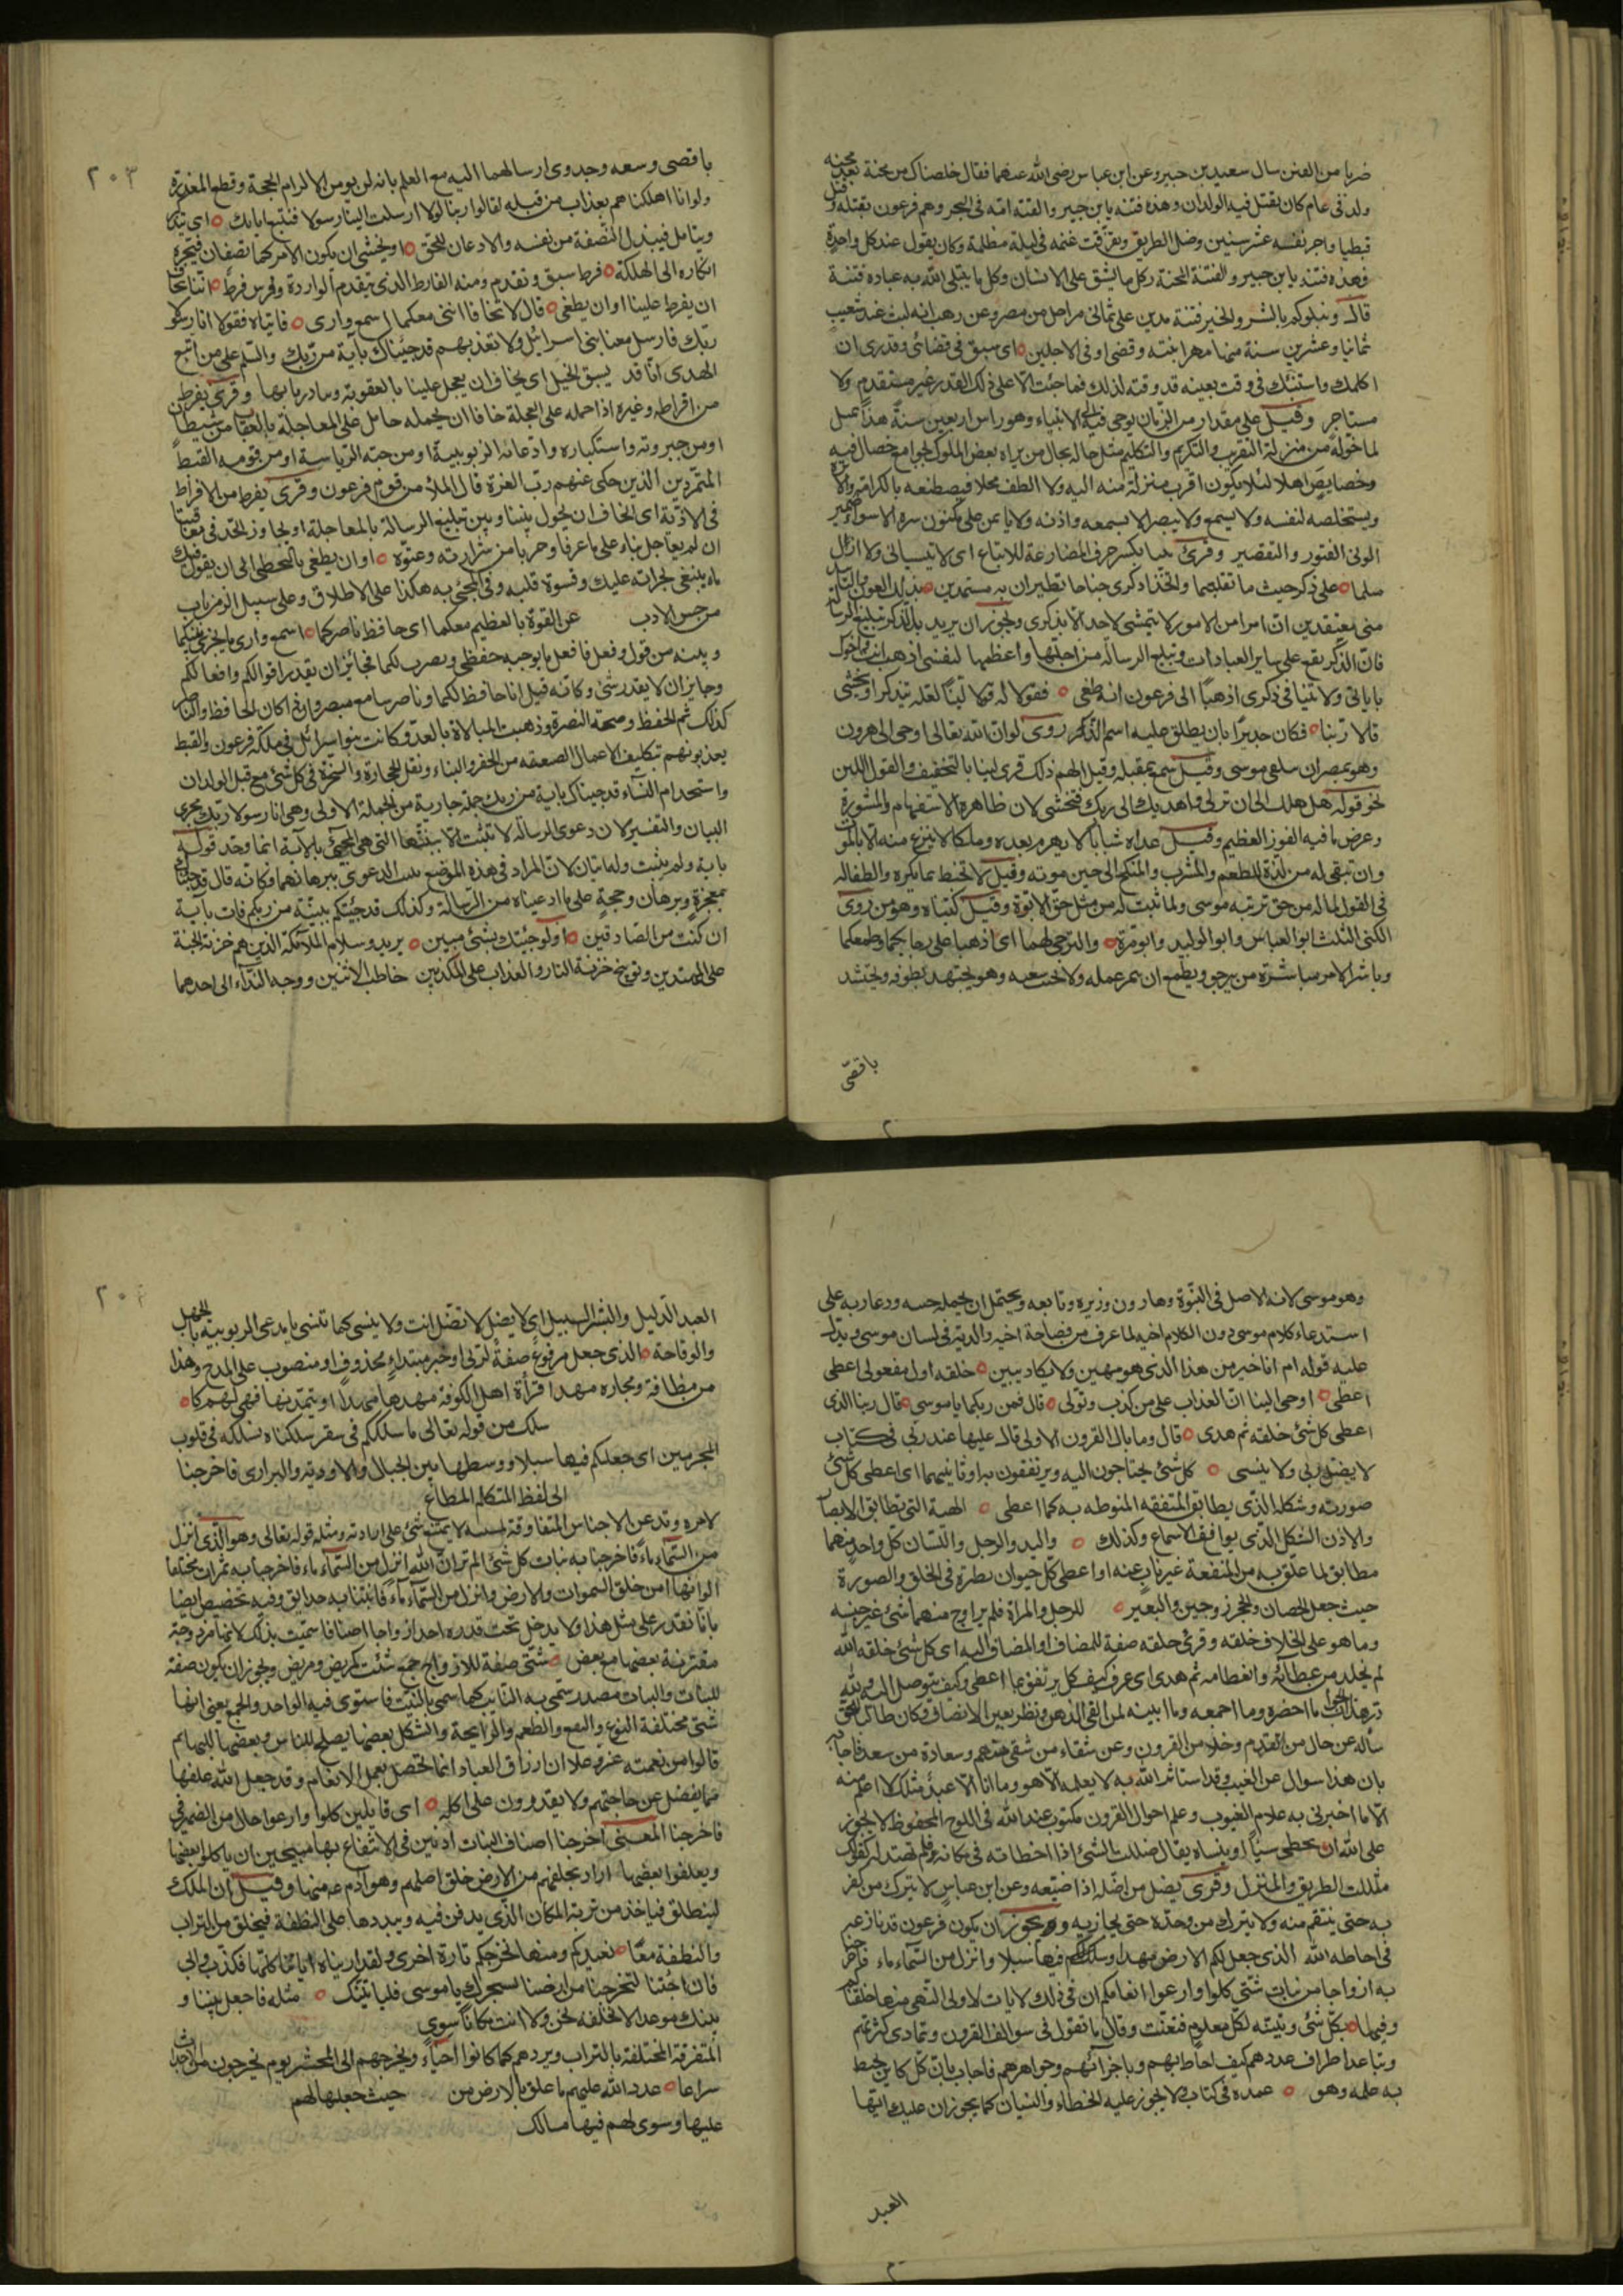 ضربا من الفتن سال سعيد بن جبير وعن ابن عباس رضى الله عنهما فقال خلصناك من محنة بعد محنه
ولد فى عام كان يقتل فيه الولدان وهذه فتنه يا بن جبير والقته امه فى البحر وهم فرعون بقتله وقتل
قبطيا واجر نفسه عشر سنين وضل الطريق وتفرقت غنمه فى ليلة مظلمة وكان يقول عند كل واحدة
فهذه فتنه يا بن جبير والفتنة المحنة وكل ما يشق على الانسان وكل ما يبتلى الله به عباده فتنة
قال ونبلوكم بالشر والخير فتنة مدين على ثمانى مراحل من مصر وعن وهب انه لبث عند شعيب
ثمانيا وعشرين سنة منها مهر ابنته وقضى اوفى الاجلين اى سبق فى قضائى وقدرى ان
اكلمك واستنبئك فى وقت بعينه قد وقته لذلك فما جئت الا على ذلك القدر غير مستقدم ولا
مستاخر وقيل على مقدار من الزمان يوحى فيه الى الانبياء وهو راس اربعين سنة هذا تمثيل
لما خوله من منزلة التقريب والتكريم والتكليم مثل حاله بحال من يراه بعض الملوك لجوامع خصال فيه
وخصايص اهلا لئلا يكون اقرب منزلة منه اليه ولا الطف محلا فيصطنعه بالكرامة والاثرة
ويستخلصه لنفسه ولا يسمع ولا يبصر الا بسمعه واذنه ولا يأتمن على مكنون سره الا سواء ضميره
الونى الفتور والتقصير وقرئ تنيا بكسر حرف المضارعة للاتباع اى لا تنسيانى ولا ازال
منى معتقدين ان امرا من الامور لا يتمشى لاحد الا بذكرى ويجوز ان يريد بالذكر تبليغ الرسالة
فان الذكر يقع على ساير العبادات وتبليغ الرسالة من اجلها واعظمها لنفسى اذهب انت واخوك
باياتى ولا تنيا فى ذكرى اذهبا الى فرعون انه طغى فقولا له قولا لينا لعله يتذكر او يخشى
قالا ربنا فكان جديرا بان يطلق عليه اسم الذكر روى لو ان الله تعالى اوحى الى هرون
وهو بمصر ان يتلقى موسى وقيل سمع بمقبله وقيل الهم ذلك قرى لينا بالتخفيف والقول اللين
نحو قوله هل لك الى ان تزكى واهديك الى ربك فتخشى لان ظاهره الاستفهام والمشورة
وعرض ما فيه الفوز العظيم وقيل عداه شبابا لا يهرم بعده وملكا لا ينزع منه الا بالموت
وان تبقى له من لذة المطعم والمشرب والمنكح الى حين موته وقيل لا تجبها بما يكره والطفا له
فى القول لما له من حق تربيته موسى ولما ثبت له من مثل حق الابوة وقيل كنياه وهو من ذوى
الكنى الثلث ابو العباس وابو الوليد وابو مرة والترجى لهما اى اذهبا على رجائكما وطمعكما
وباشرا الامر مباشرة من يرجو ويطمع ان يثمر عمله ولا يخيب سعيه وهو يجتهد بطوقه ويحتشد
باقصى
٢٠٣
باقصى وسعه وجدوى ارسالهما اليه مع العلم بانه لن يومن الا الزام الحجة وقطع المعذرة
ولو انا اهلكناهم بعذاب من قبله لقالوا ربنا لولا ارسلت الينا رسولا فنتبع اياتك اى يتذكر
ويتامل فيبذل النصفة من نفسه والاذعان للحق او يخشى ان يكون الامر كما تصفان فيجره
انكاره الى الهلكة فرط سبق وتقدم ومنه الفارط الذى يتقدم الواردة وفرس فرط اننا نخاف
ان يفرط علينا او ان يطغى قال لا تخافا اننى معكما اسمع وارى فاتياه فقولا انا رسولا
ربك فارسل معنا بنى اسرائل ولا تعذبهم قد جئناك باية من ربك والسلم على من اتبع
الهدى انا قد يسبق الخيل اى يخاف ان يعجل علينا بالعقوبة ويبادرنا بها وقرى يفرط
من افرطه وغيره اذا حمله على العجلة خافا ان يحمله حامل على المعاجلة بالعقاب من شيطان
او من جبروته واستكباره وادعائه الربوبية او من حبه الرياسة او من قومه القبط
المتمردين الذين حكى عنهم رب العزة قال الملأ من قوم فرعون وقرى يفرط من الافراط
فى الاذية اى نخاف ان يحول بيننا وبين تبليغ الرسالة بالمعاجلة او يجاوز الحد فى معاقبتنا
ان لم يعاجل بناء على ما عرفا وجربا من شرارته وعتوه او ان يطغى بالتخطى الى ان يقول فيك
ما لا ينبغى لجراته عليك وقسوة قلبه وفى المجئ به هكذا على الاطلاق وعلى سبيل الرمز باب
من حسن الادب عن القوة بالعظيم معكما اى حافظ ناصركما اسمع وارى ما يجرى بينكما
وبينه من قول وفعل فافعل ما يوجبه حفظى ونصرى لكما فجائز ان يقدر اقوالكم وافعالكم
وجايز ان لا يقدر شئ وكانه قيل انا حافظ لكما وناصر سامع مبصر واذا كان الحافظ والناصر
كذلك تم الحفظ وصحت النصرة وذهبت المبالاة بالعدو وكانت بنوا اسرائل فى ملكة فرعون والقبط
يعذبونهم بتكليف الاعمال الصعبة من الحفر والبناء ونقل الحجارة والسخرة فى كل شئ مع قتل الولدان
واستخدام النساء قد جيناك باية من ربك جملة جارية من الجملة الاولى وهى انا رسولا ربك مجرى
البيان والتفسير لان دعوى الرسالة لا تثبت الا ببينتها التى هى المجئ بالاية انما وحد قوله
باية ولم يثنيت ولها يتان لان المراد فى هذه الموضع تثبيت الدعوى ببرهانهما وكانه قال قد جئناك
بمعجزة وبرهان وحجة على ما ادعيناه من الرسالة وكذلك قد جئتكم ببينة من ربكم فات باية
ان كنت من الصادقين اولو جئتك بشئ مبين يريد وسلام الملائكة الذين هم خزنة الجنة
على المهتدين وتوبيخ خزنة النار والعذاب على المكذبين خاطب الاثنين ووجه النداء الى احدهما
وهو موسى لانه الاصل فى النبوة وهارون وزيره وتابعه ويحتمل ان يحمله خبثه ودعارته على
استدعاء كلام موسى دون الكلام اخيه لما عرف من فصاحة اخيه والرتة فى لسان موسى ويدل
عليه قوله ام انا خير من هذا الذى هو مهين ولا يكاد يبين خلقه اول مفعولى اعطى
اعطى اوحى الينا ان العذاب على من كذب وتولى قال فمن ربكما يا موسى قال ربنا الذى
اعطى كل شئ خلقه ثم هدى قال وما بال القرون الاولى قال عليها عند ربى فى كتاب
لا يضل ربى ولا ينسى كل شئ يحتاجون اليه ويرتفقون به او ثانيهما اى اعطى كل شئ
صورته وشكله الذى يطابق المنفعة المنوطه به كما اعطى الهيئة التى تطابق الابصار
والاذن الشكل الذى يوافق الاسماع وكذلك واليد والرجل واللسان كل واحد منهما
مطابق لما علق به من المنفعة غير ناب عنه او اعطى كل حيوان نظيره فى الخلق والصورة
حيث جعل الحصان والحجر زوجين والبعير للرجل والمراة فلم يزاوج منهما شئ غير جنسه
وما هو على الخلاف خلقه وقرئ خلقه صفة للمضاف او المضاف اليه اى كل شئ خلقه الله
لم يخله من عطائه وانعامه ثم هدى اى عرف كيف كل يرتفق بما اعطى وكيف يتوصل اليه ولله
در هذا الجواب ما اخصره وما اجمعه وما ابينه لمن القى الذهن ونظر بعين الانصاف وكان طالبا للحق
سأله عن حال من تقدم وخلا من القرون وعن شقاء من شقى منهم وسعادة من سعد فاجابه
بان هذا سوال عن الغيب وقد استاثر الله به لا يعلمه الا هو وما انا الا عبد مثلك لا اعلم منه
الا ما اخبرنى به علام الغيوب وعلم احوال القرون مكتوب عند الله فى اللوح المحفوظ لا يجوز
على الله ان يخطى سيا او ينساه يقال ضللت الشئ اذا اخطاته فى مكانه فلم تهتد له كقولك
ضللت الطريق والمنزل وقرى يضل من اضله اذا ضيعه وعن ابن عباس لا يترك من كفر
به حتى ينتقم منه ولا يترك من وحده حتى يجازيه ويجوز ان يكون فرعون قد نازعه
فى احاطه الله الذى جعل لكم الارض مهدا وسلك لكم فيها سبلا وانزل من السماء ماء فاخرجنا
به ازواجا من نبات شتى كلوا وارعوا انعامكم ان فى ذلك لايات لاولى النهى منها خلقناكم
وفيها بكل شئ وتبينه لكل معلوم فتعنت وقال ما تقول فى سوالف القرون وتمادى كثرتهم
وتباعد اطراف عددهم كيف احاط بهم وباجزائهم وجواهرهم فاجاب بان كل كاين محيط
به علمه وهو عمده فى كتاب لا يجوز عليه الخطاء والنسيان كما يجوزان عليك ايها
العبد
العبد الذليل والبشر السبيل اى لا يضل لا تضل انت ولا ينسى كما تنسى يا مدعى الربوبية بالجهل
والوقاحة والذى جعل مرفوع صفة لربى او خبر مبتداء محذوف او منصوب على المدح وهذا
من مظانه ومجازه مهدا قرأة اهل الكوفة مهدها مهدا او يتمهدنها فهى لهم كا
سلك من قوله تعالى ما سلككم فى سقر سلكناه نسلكه فى قلوب
المجرمين اى جعلكم فيها سبلا ووسطها بين الجبال والاودية والبرارى فاخرجنا
الى لفظ المتكلم المطاع
لامره وتذعن الاجناس المتفاوتة لمشيه لا يمتنع شئ على ارادته ومثله قوله تعالى وهو الذى انزل
من السماء ماء فاخرجنا به نبات كل شئ الم تر ان الله انزل من السماء ماء فاخرجنا به ثمرات مختلفا
الوانها امن خلق السموات والارض وانزل من السماء ماء فانبتنا به حدايق وفيه تخصيص ايضا
بانا نقدر على مثل هذا ولا يدخل تحت قدره احد ازواجا اصنافا سميت بذلك لانها مزدوجة
مقترنة بعضها مع بعض شتى صفة للازواج جمع شتت كمريض ومرضى ويجوز ان يكون صفة
للنبات والنبات مصدر سمى به النابت كما سمى بالنبت فاستوى فيه الواحد والجمع يعنى انها
شتى مختلفة النوع والنفع والطعم والرايحة والشكل بعضها يصلح للناس وبعضها للبهائم
قالوا من نعمته عز وعلا ان ارزاق العباد انما تحصل بعمل الانعام وقد جعل الله علفها
مما يفضل عن حاجتهم ولا يقدرون على اكله اى قايلين كلوا وارعوا حال من الضمير فى
فاخرجنا المعنى اخرجنا اصناف النبات اذنين فى الانتفاع بها مبيحين ان ياكلوا بعضها
ويعلفوا بعضها اراد بخلقهم من الارض خلق اصلهم وهو ادم عم منها وقيل ان الملك
لينطلق فياخذ من تربة المكان الذى يدفن فيه ويبددها على النطفة فيخلق من التراب
والنطفة معا نعيدكم ومنها نخرجكم تارة اخرى ولقد اريناه اياتنا كلها فكذب وابى
قال اجئتنا لتخرجنا من ارضنا بسحرك يا موسى فلياتينك مثله فاجعل بيننا و
بينك موعدا لا نخلفه نحن ولا انت مكانا سوى
المتفرقة المختلفة بالتراب ويردهم كما كانوا احياء ويخرجهم الى المحشر يوم يخرجون من الاجداث
سراعا عدد الله عليهم ما علق بالارض من حيث جعلها لهم
عليها وسوى لهم فيها مسالك